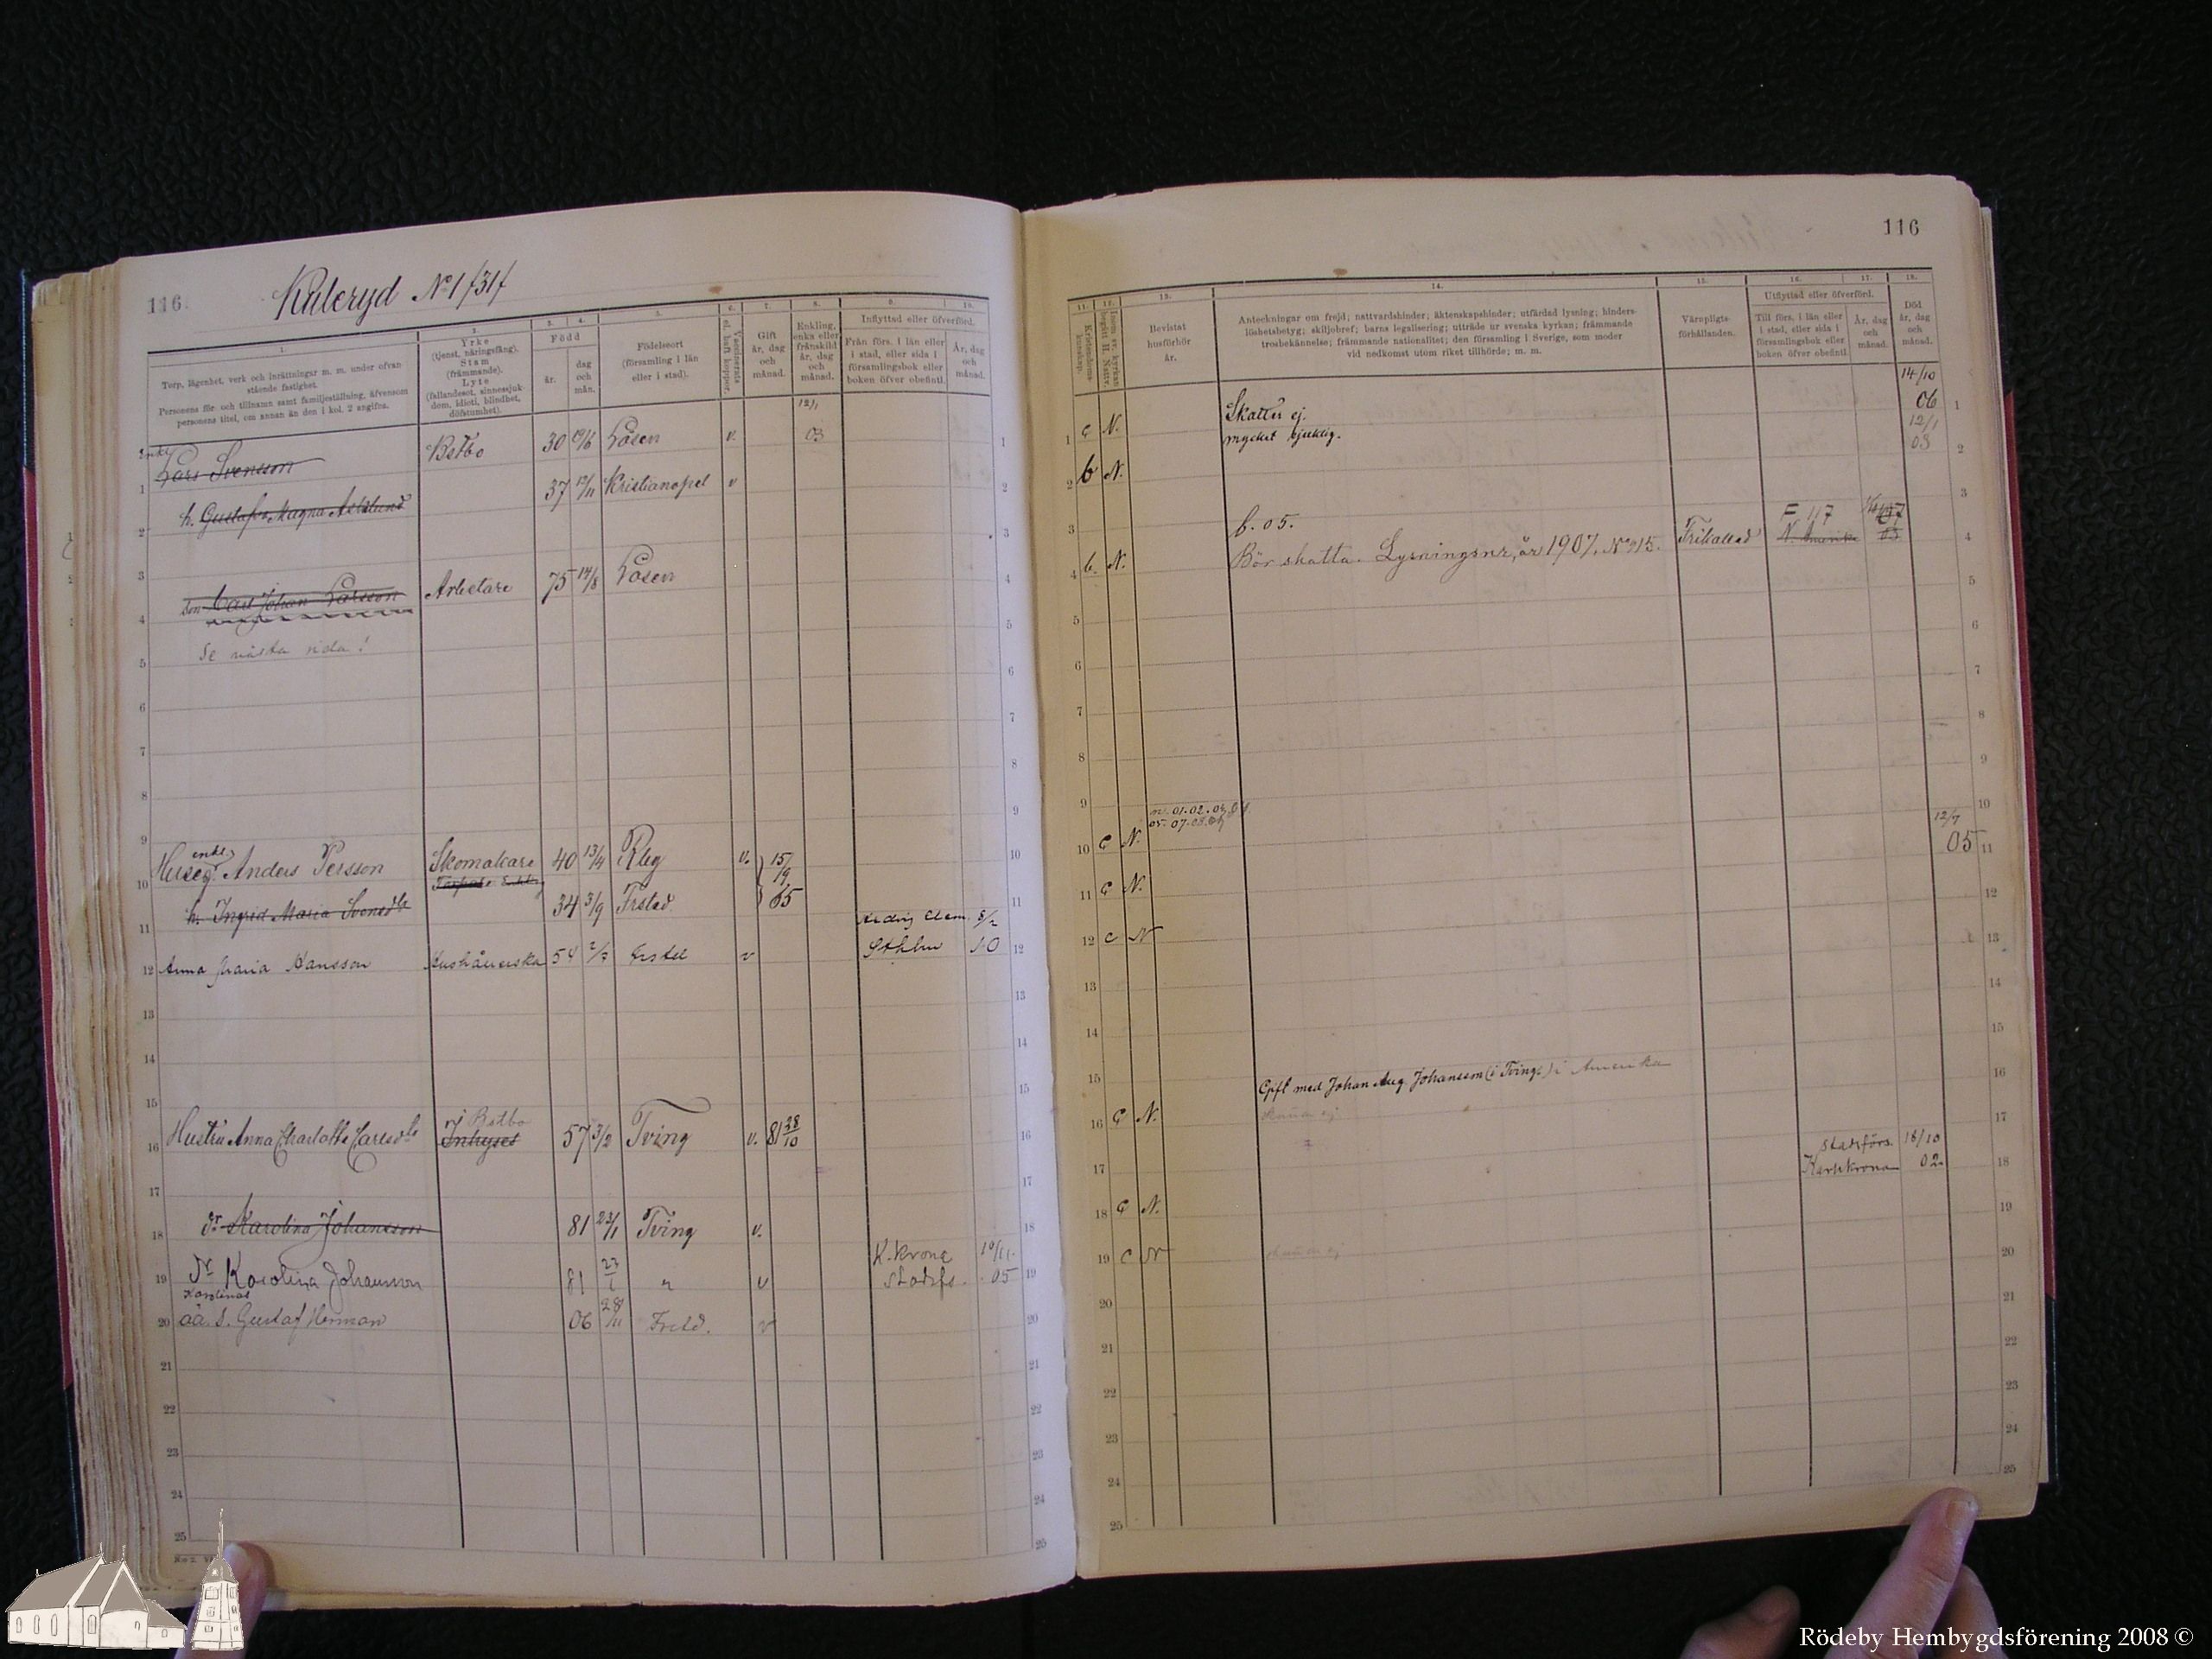 116.
Kuleryd No 1/31/
1.
Torp, lägenhet, verk och inrättningar m. m. under ofvan-
stående fastighet.
Personens för- och tillnamn samt familjeställning, äfvensom
personens titel, om annan än den i kol. 2 angifna.
2.
Yrke
(tjenst, näringsfång).
Stam
(främmande).
Lyte
(fallandesot, sinnessjuk-
dom, idioti, blindhet,
döfstumhet).
3. 4.
Född
år.
dag
och
mån.
5.
Födelseort
(församling i län
eller i stad).
6.
Vaccinerats
el. haft koppor.
7.
Gift
år, dag
och
månad.
8.
Enkling,
enka eller
frånskild
år, dag
och
månad.
9. 10.
Inflyttad eller öfverförd.
Från förs. i län eller
i stad, eller sida i
församlingsbok eller
boken öfver obefintl.
År, dag
och
månad.
enkl.
1 Lars Svensson Bstbo 30 Lösen v. 12/1 03
2 h. Gustafva Magna Kristianopel 37 12/11 v
4 son Carl Johan Larsson Arbetare 75 14/8 Lösen
Se nästa sida!
10 Huseg. enkl. Anders Persson Skomakare 40 13/4 Rbg v. 15/9 65
11 h. Ingrid Maria Svensdr 34 3/9 Frstad
12 Anna Maria Hansson Hushållerska 54 2/7 v Hedvig Elem. Sthlm 10
16 Hustru Anna Charlotta Carlsdr Bstbo Inhyses 57 3/2 Tving v. 81 28/10
18 dr Karolina Johansson 81 23/1 Tving v.
19 Dr Karolina Johansson 81 23/1 " v K.krona Stadsfs. 10/11 05
Karolinas
20 oä. S. Gustaf Herman 06 28/11 v
116
11.
Kristendoms-
kunskap.
12.
13.
Bevistat
husförhör
år.
14.
Anteckningar om frejd; nattvardshinder; äktenskapshinder; utfärdad lysning; hinders-
löshetsbetyg; skiljobref; barns legalisering; utträde ur svenska kyrkan; främmande
trosbekännelse; främmande nationalitet; den församling i Sverige, som moder
vid nedkomst utom riket tillhörde; m. m.
15.
Värnpligts-
förhållanden.
16. 17.
Utflyttad eller öfverförd.
Till förs. i län eller
i stad, eller sida i
församlingsbok eller
boken öfver obefintl.
År, dag
och
månad.
18.
Död
år, dag
och
månad.
1 c N. Skattar ej. 14/10 06
mycket sjuklig.
2 b N. 12/1 03
f. 05.
4 b. N. Bör skatta. Lysningsnr, år 1907, No 215. Frikallad F 117 N. Amerika
10 c N.
11 c N. 12/7 05
12 c N
16 c N. Gift med Johan Aug. Johansson (i Tving) i Amerika
18 c N. Stadsförs. Karlskrona 18/10 02
19 c N
Rödeby Hembygdsförening 2008 ©